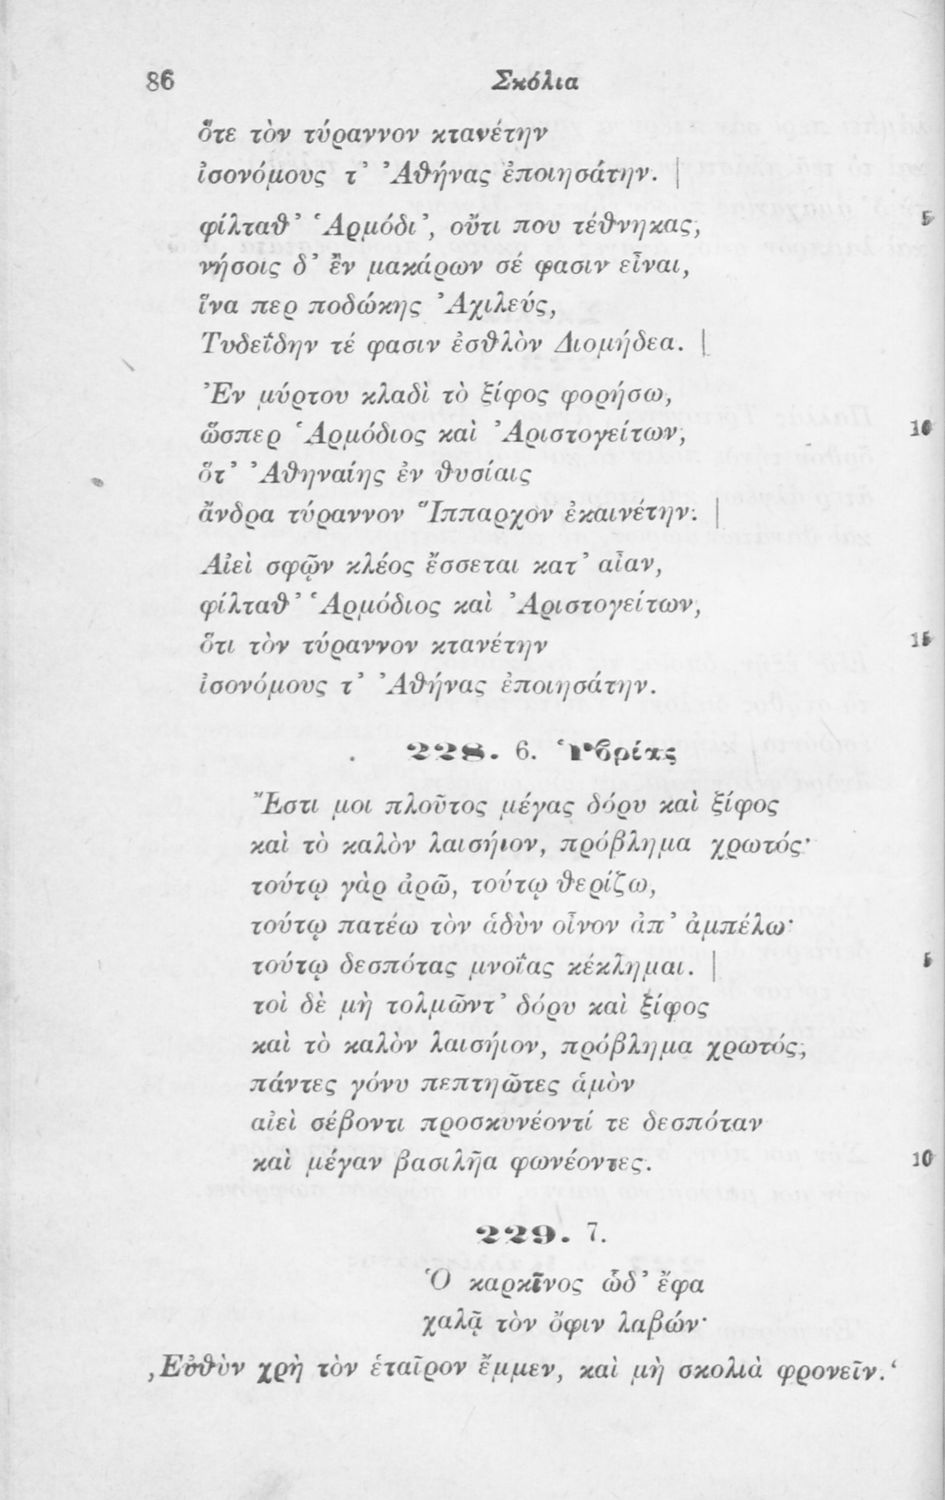 86 Σκόλια
ὅτε τὸν τύραννον κτανέτην
ἰσονόμους τ᾽ Ἀθήνας ἐποιησάτην. |
φίλταθ᾽ Ἁρμόδι᾽, οὔτι που τέθνηκας, 5
νήσοις δ᾽ ἐν μακάρων σέ φασιν εἶναι,
ἵνα περ ποδώκης Ἀχιλεύς,
Τυδεΐδην τέ φασιν ἐσθλὸν Διομήδεα. |
Ἐν μύρτου κλαδὶ τὸ ξίφος φορήσω,
ὥσπερ Ἁρμόδιος καὶ Ἀριστογείτων, 10
ὅτ᾽ Ἀθηναίης ἐν θυσίαις
ἄνδρα τύραννον Ἵππαρχον ἐκαινέτην. |
Αἰεὶ σφῷν κλέος ἔσσεται κατ᾽ αἶαν,
φίλταθ᾽ Ἁρμόδιος καὶ Ἀριστογείτων,
ὅτι τὸν τύραννον κτανέτην 15
ἰσονόμους τ᾽ Ἀθήνας ἐποιησάτην.
228. 6. Ὑβρίας
Ἔστι μοι πλοῦτος μέγας δόρυ καὶ ξίφος
καὶ τὸ καλὸν λαισήιον, πρόβλημα χρωτός·
τούτῳ γὰρ ἀρῶ, τούτῳ θερίζω,
τούτῳ πατέω τὸν ἁδὺν οἶνον ἀπ᾽ ἀμπέλω·
τούτῳ δεσπότας μνοΐας κέκλημαι. | 5
τοὶ δὲ μὴ τολμῶντ᾽ δόρυ καὶ ξίφος
καὶ τὸ καλὸν λαισήιον, πρόβλημα χρωτός,
πάντες γόνυ πεπτηῶτες ἁμὸν
αἰεὶ σέβοντι προσκυνέοντί τε δεσπόταν
καὶ μέγαν βασιλῆα φωνέοντες. 10
229. 7.
Ὁ καρκῖνος ὧδ᾽ ἔφα
χαλᾷ τὸν ὄφιν λαβών·
‚Εὐθὺν χρὴ τὸν ἑταῖρον ἔμμεν, καὶ μὴ σκολιὰ φρονεῖν.‘